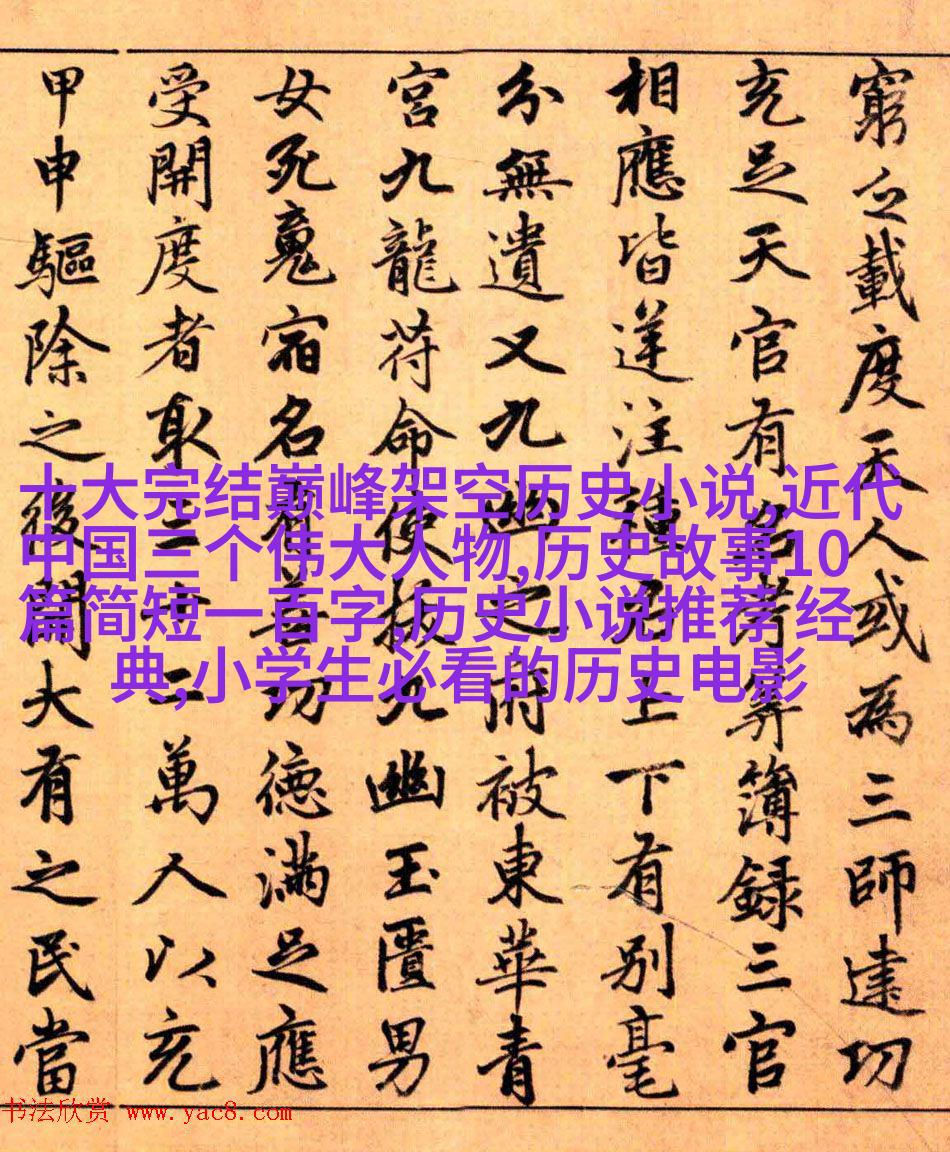 窮之載度天人或為三師建功
充足天官有名考筭簿錄三官
相應皆逆注種名上下有別毫
分無遺又九幽之府被東華青
宮九龍符命使拔九幽玉匱男
女死魂宿名有善功德滿足應
受開度者取三十二萬人以充
甲申驅除之後開大有之民當
十大完结巅峰架空历史小说,近代
中国三个伟大人物,历史故事10
篇简短一百字,历史小说推荐 经
典,小学生必看的历史电影
书法欣赏 www.yac8.com